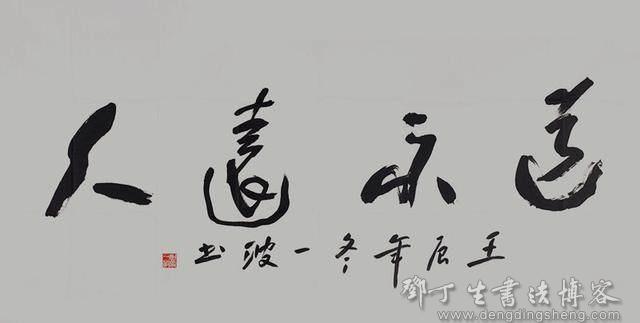 道不遠人
壬辰年冬一波书
鄧丁生書法博客
www.dengdingsheng.com